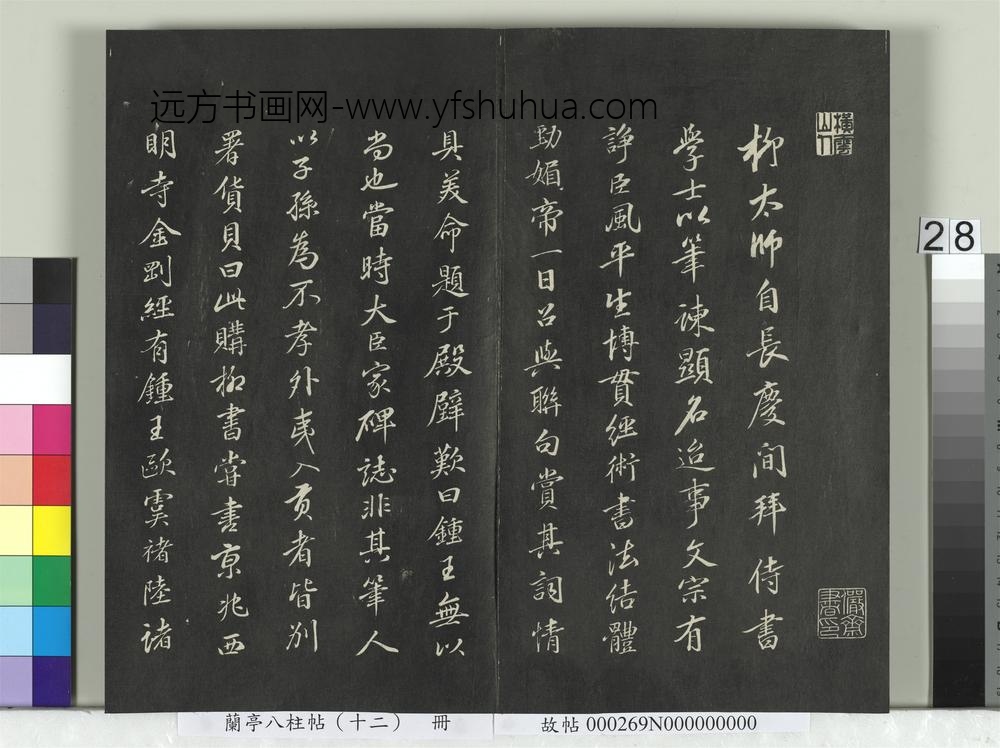 远方书画网-www.yfshuhua.com
柳太師自長慶間拜侍書
學士以筆諫顯名迨事文宗有
諍臣風平生博貫經術書法結體
勁媚帝一日召與聯句賞其詞情
具美命題于殿壁歎曰鍾王無以
尚也當時大臣家碑誌非其筆人
以子孫為不孝外夷入貢者皆別
署貨貝曰此購柳書嘗書京兆西
明寺金剛經有鍾王歐虞褚陸諸
橫雲山人
儼齋書印
28
蘭亭八柱帖（十二） 冊
故帖 000269N000000000